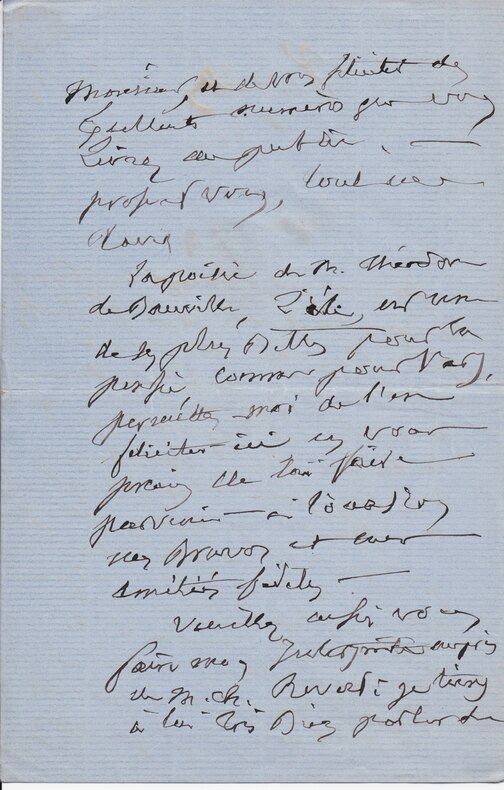 Monsieur, de vous féliciter des
excellents numéros que vous
livrez au public. —
vous, tout une
La poésie de M. Théodore
de Banville, L'été, est une
de ses plus belles pour la
pensée comme pour l'art,
permettez-moi de l'en
féliciter ici en vous
priant de lui faire
parvenir
mes bravos et mes
amitiés fidèles —
Veuillez aussi vous
faire mon interprète auprès
de M. ch. je tiens
à lui très bien